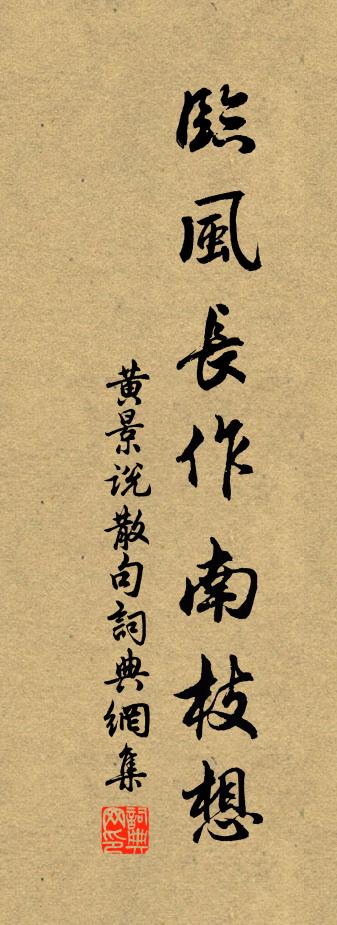 臨風長作南枝想
黄景说散句詞典網集
詞典网印